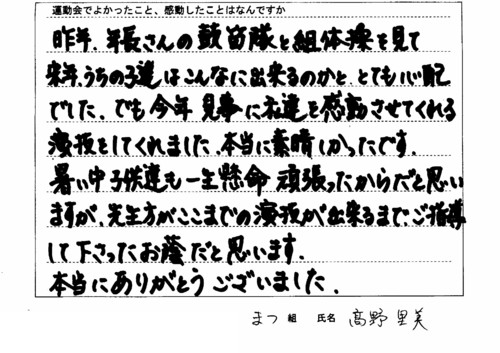 運動会でよかったこと、感動したことはなんですか
昨年、年長さんの鼓笛隊と組体操を見て
来年、うちの子達はこんなに出来るのかと、とても心配
でした、でも今年見事に私達を感動させてくれる
演技をしてくれました、本当に素晴しかったです。
暑い中子供達も一生懸命頑張ったからだと思い
ますが、先生方がここまでの演技が出来るまで、ご指導
して下さったお蔭だと思います。
本当にありがとうございました。
まつ 組 氏名 髙野里美